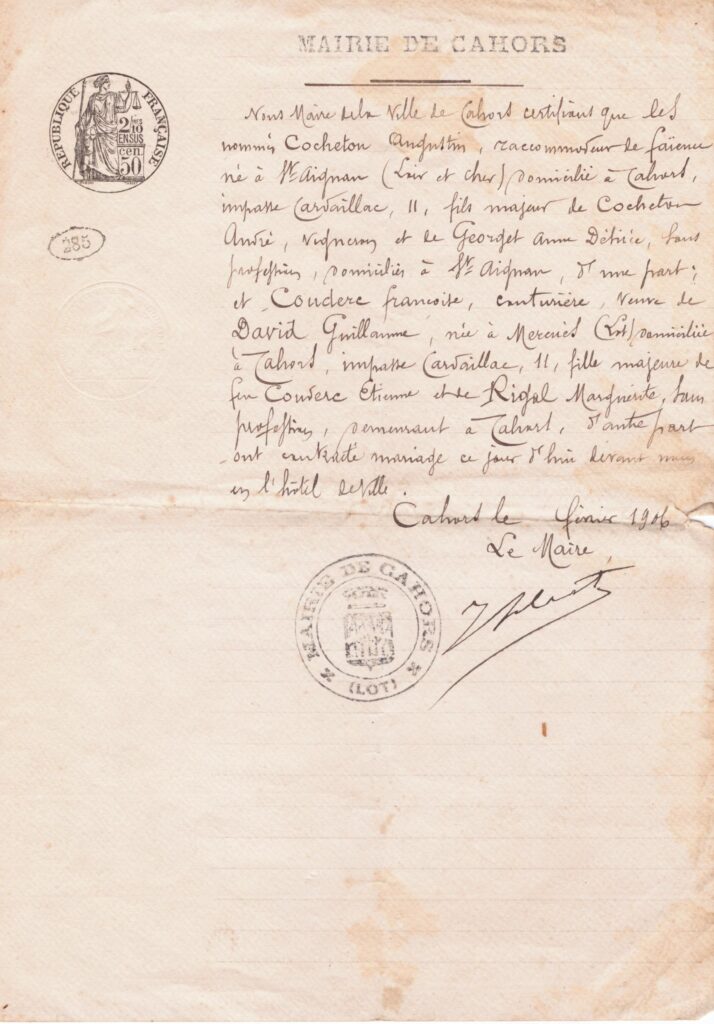 MAIRIE DE CAHORS
RÉPUBLIQUE FRANÇAISE
2/10
EN SUS
50
cen.
285
Nous Maire de la Ville de Cahors certifions que les
nommés Cocheton Augustin, raccommodeur de faïence
né à St Aignan (Loir et cher) domicilié à Cahors,
impasse Cardaillac, 11, fils majeur de Cocheton
André, Vigneron et de Georget Anne Désirée, sans
profession, domiciliés à St Aignan, d'une part;
et Couderc françoise, couturière, veuve de
David Guillaume, née à Mercuès (Lot) domiciliée
à Cahors, impasse Cardaillac, 11, fille majeure de
feu Couderc Etienne et de Rigal Marguerite, sans
profession, demeurant à Cahors, d'autre part
ont contracté mariage ce jour d'hui devant nous
en l'hôtel de Ville.
Cahors le février 1906
Le Maire,
MAIRIE DE CAHORS
(LOT)